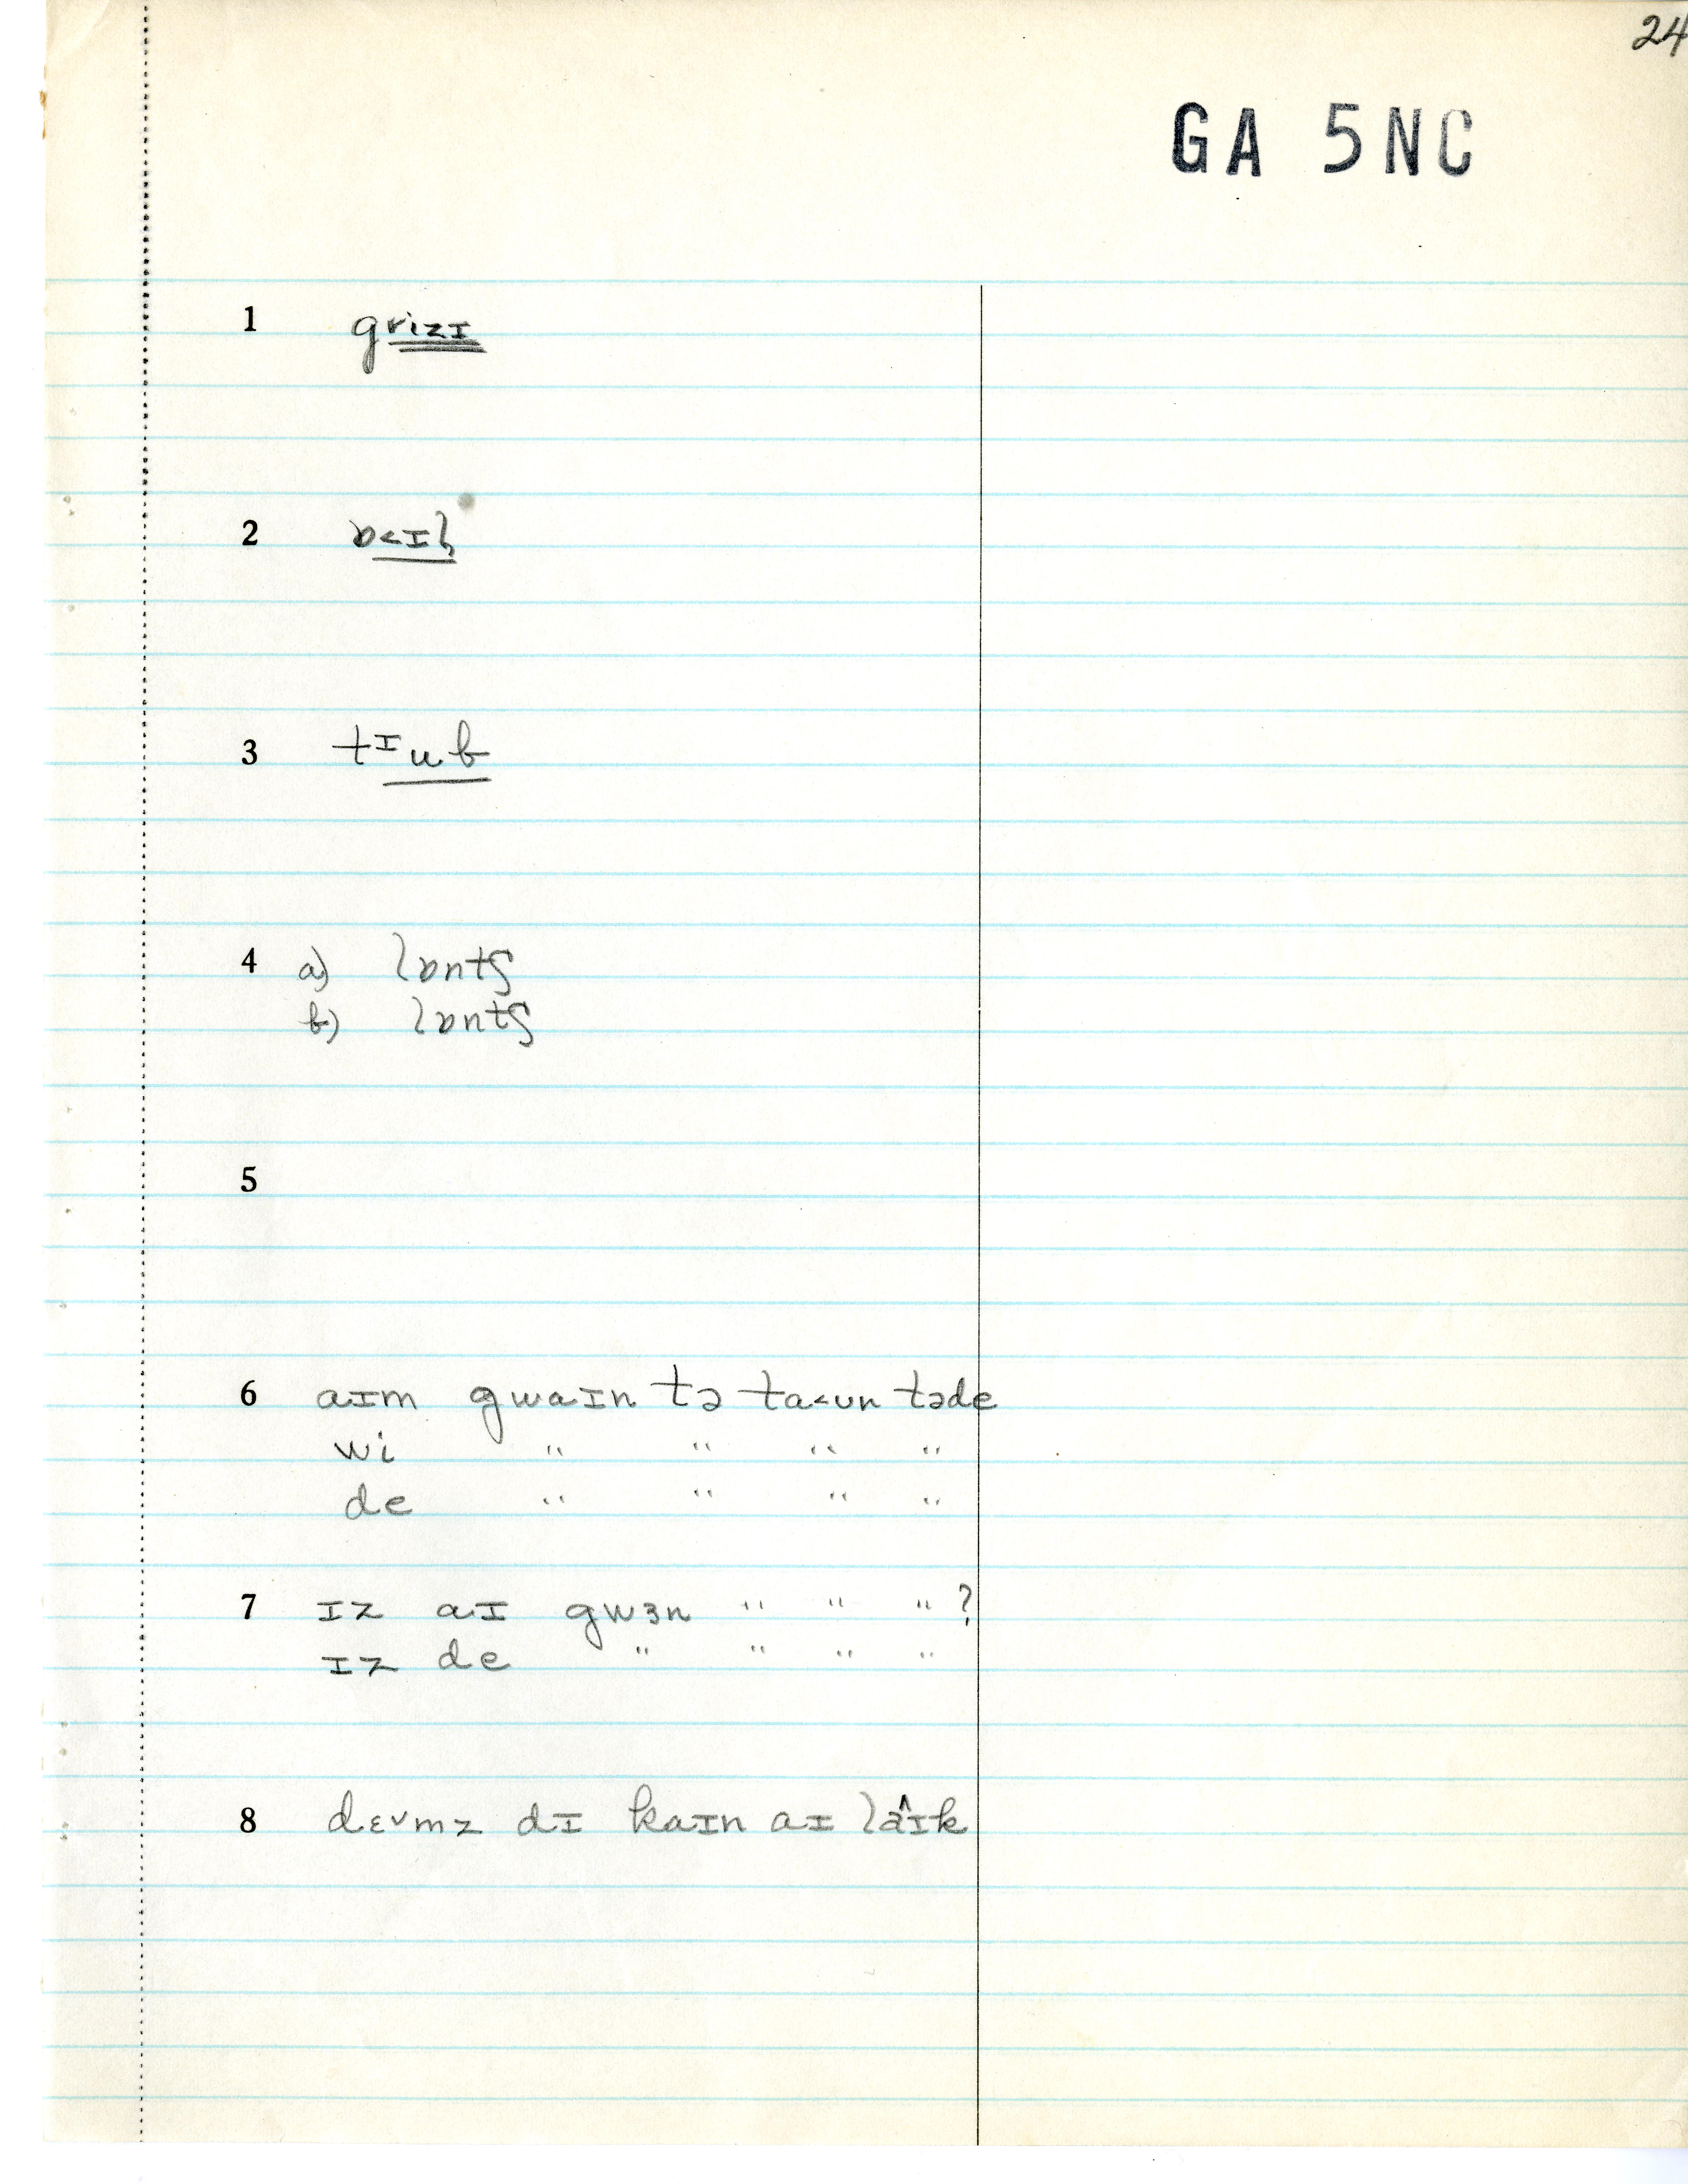 24
GA 5NC
1 grizɪ
2 ɒ<ɪl
3 tᶦub
4 a) lɒntʃ
b) lɒntʃ
5
6 aɪm gwaɪn tə ta<ʊn təde
wi " " " "
de " " " "
7 ɪz aɪ gwɜn " " " ?
ɪz de " " " "
8 dɛvmz dɪ kaɪn aɪ laˆɪk